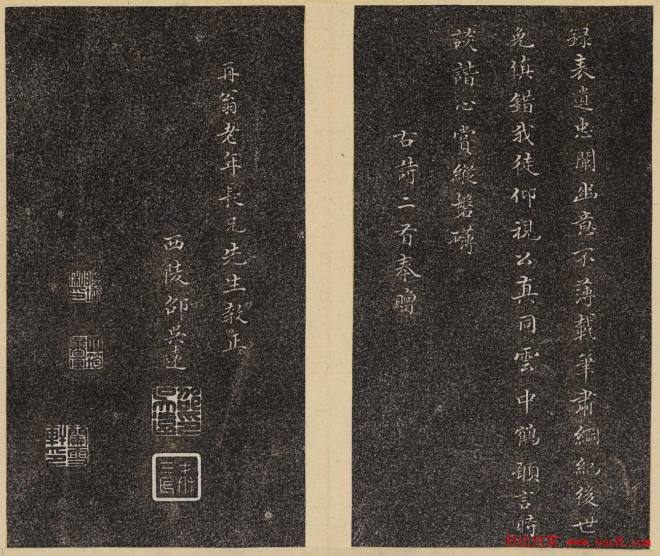 録表遺忠闡幽意不薄載筆肅綱紀後世
免慎錯我徒仰視公真同雲中鶴願言時
談諧心賞縱磐礴
古詩二首奉贈
再翁老年長兄先生教正
西陵邵吳遠